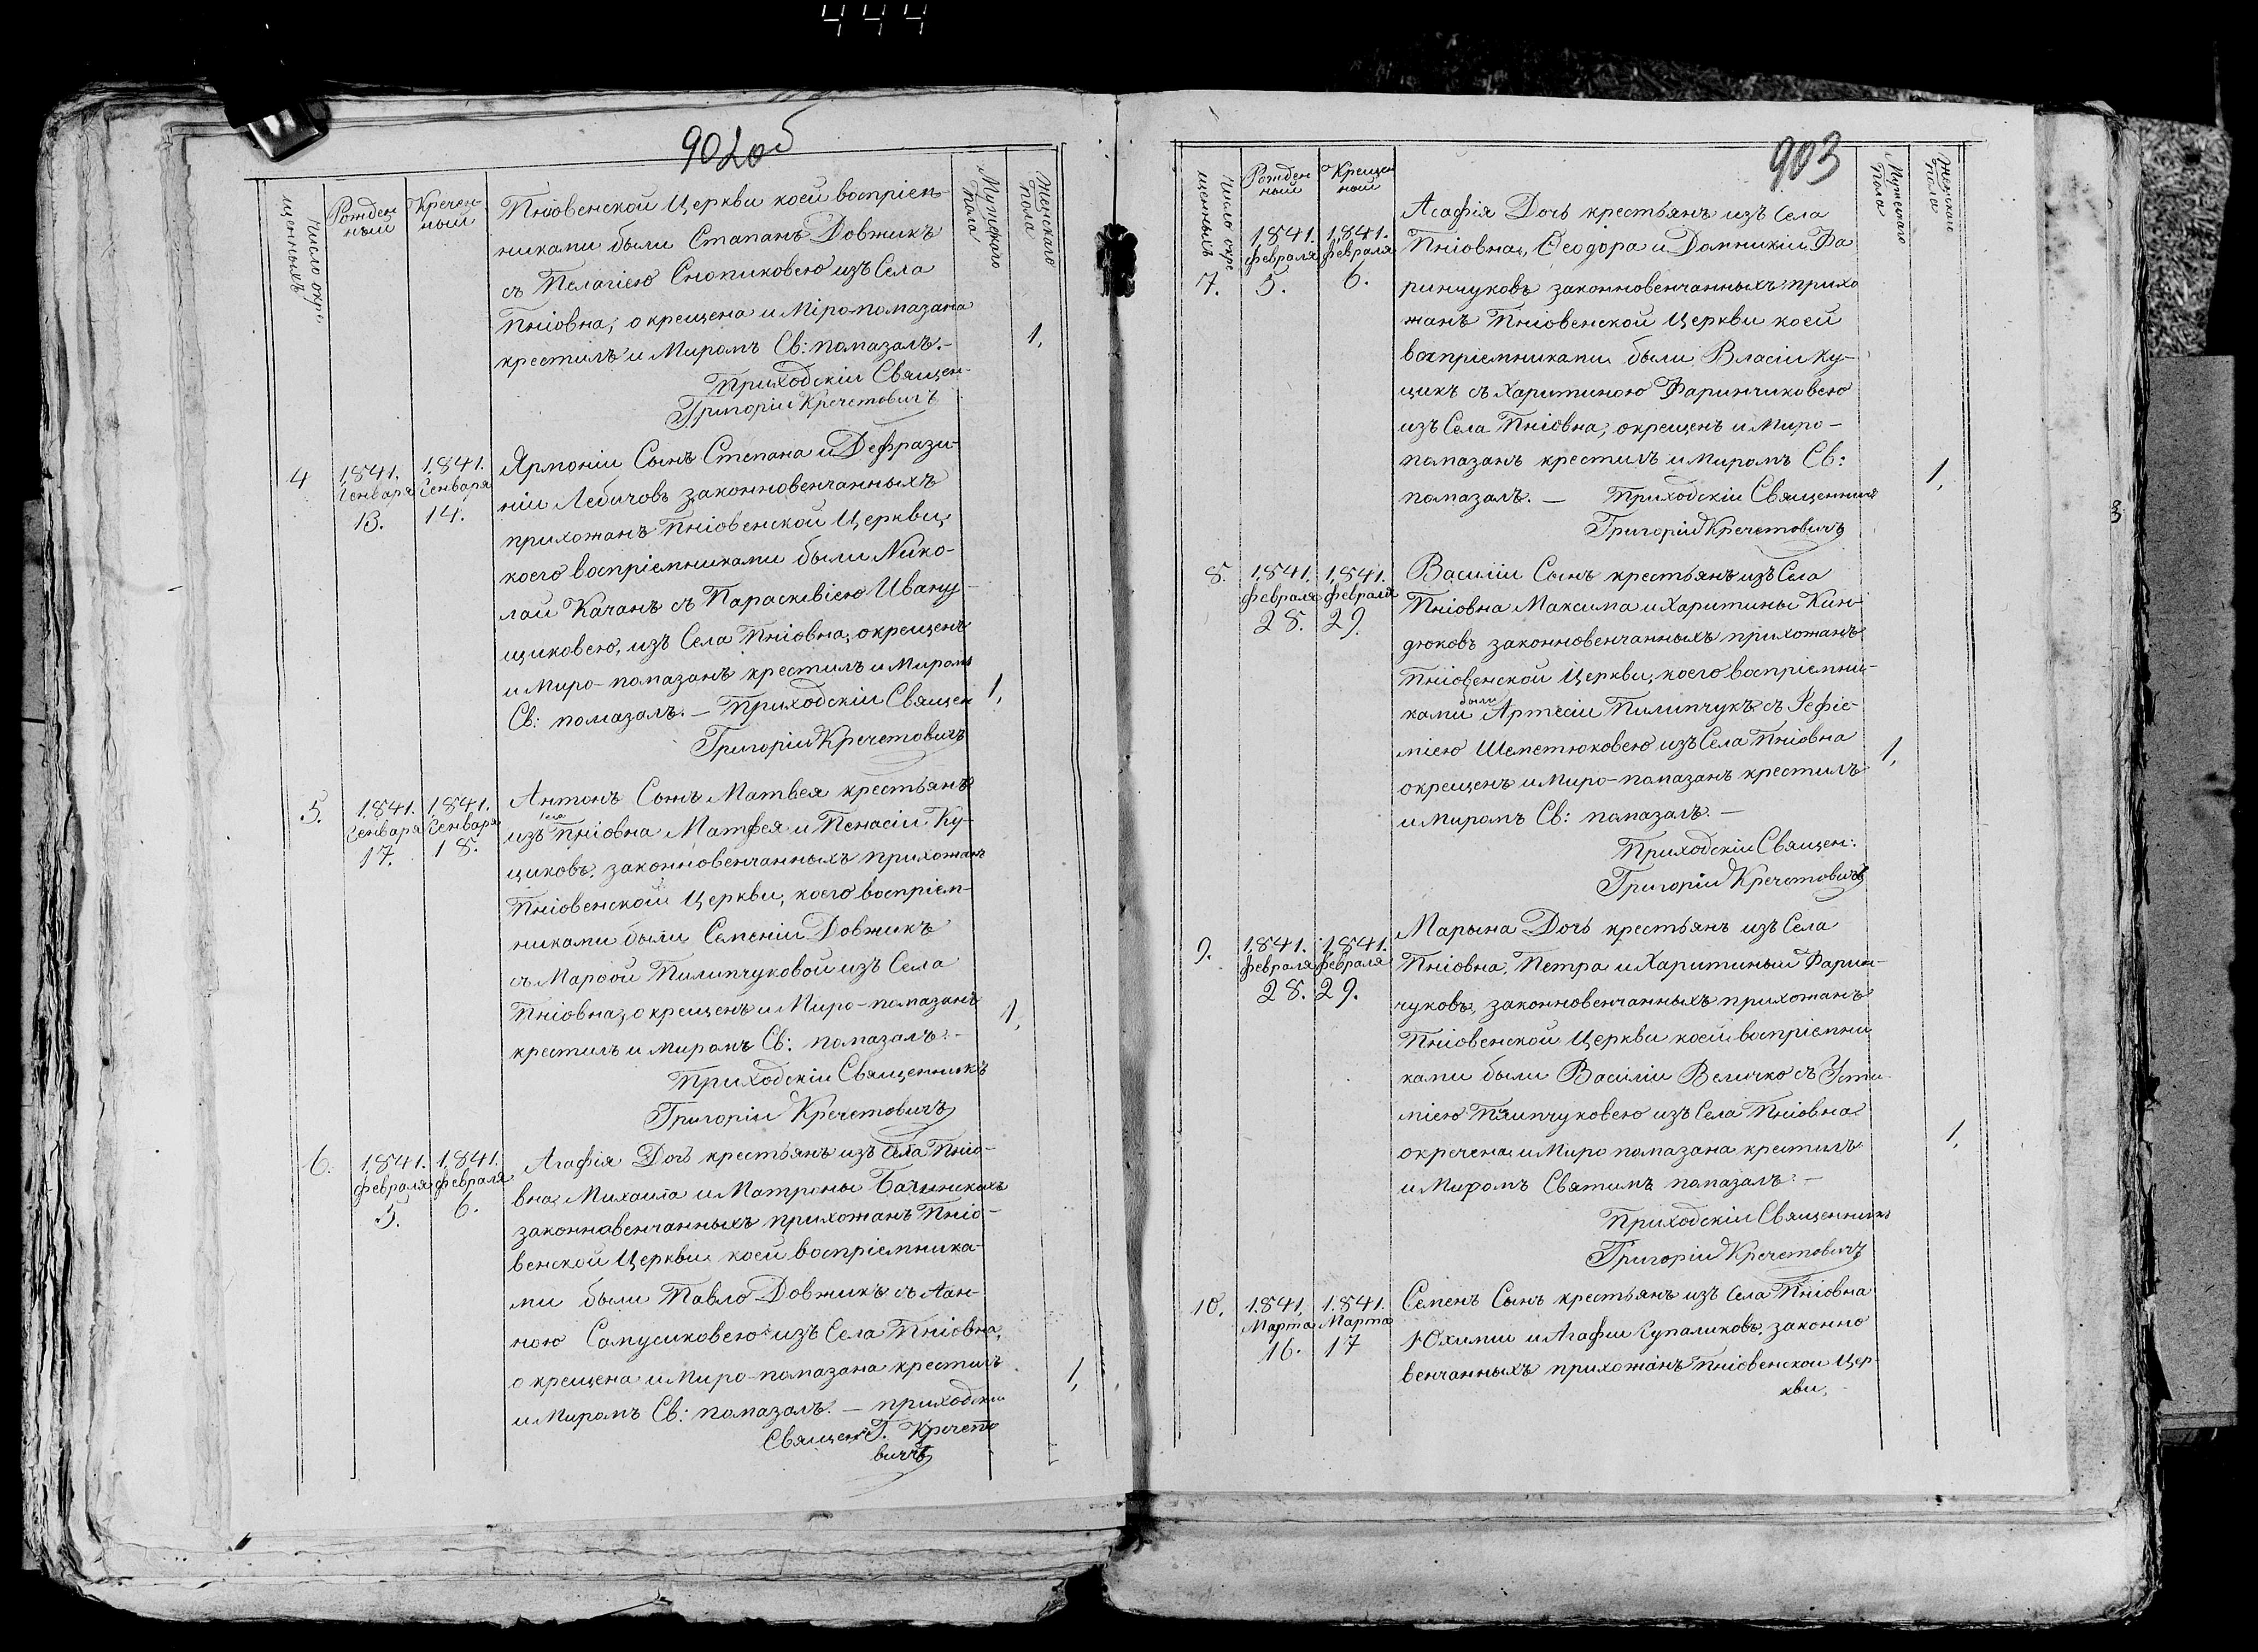 444
902об
Число окре
щенныхъ
Рожден
ный
Кречен
ный
Мужескаго
Пола
Женскаго
Пола
Пніовенской Церкви коей воспріем-
никами были Стапанъ Довжикъ
съ Пелагіею Снопиковею изъ Села
Пніовна, окрещена и Міропомазана
крестилъ и Миромъ Св: помазалъ.-
1,
Приходскіи Священ-
Григоріи Кречетовичъ
4
1841.
Генваря
13.
1841.
Генваря
14.
Ярмоніи Сынъ Степана и Дефрази-
ніи Лебичовъ законновенчанныхъ
прихожанъ Пніовенской Церкви,
коего воспріемниками были Нико-
лаи Качанъ съ Параскивіею Ивану-
щиковею, изъ Села Пніовна, окрещенъ
и Миро-помазанъ крестилъ и Миромъ
Св: помазалъ. — Приходскіи Священ
1,
Григоріи Кречетовичъ
5.
1841.
Генваря
17.
1841.
Генваря
18.
Антонъ Сынъ Матвея крестьянъ
села
изъ Пніовна Матфея и Пенасіи Ку-
циковъ, законновенчанныхъ прихожанъ
Пніовенской Церкви, коего воспріем-
никами были Семеніи Довжикъ
съ Марѳой Пилипчуковой изъ Села
Пніовна, окрещенъ и Миро-помазанъ
1,
крестилъ и миромъ Св: помазалъ.-
Приходскіи Священникъ
Григоріи Кречетовичъ
6.
1841.
февраля
5.
1841.
февраля
6.
Агафія Дочь крестьянъ изъ Села Пніо-
вна, Михаила и Матроны
законновенчанныхъ прихожанъ Пніо-
венской Церкви коей воспріемника-
ми были Павло Довжикъ съ Аан-
ною Самусиковею изъ Села Пніовна,
окрещена и Миро-помазана крестилъ
1,
и Миромъ Св: помазалъ. — приходскіи
Священ. Г. Кречето
вичъ
903
Число окре
щенныхъ
Рожден
ный
Крещен
ный
Мужескаго
Пола
Женскаго
Пола
7.
1841.
февраля
5.
1841.
февраля
6.
Агафія Дочь крестьянъ изъ Села
Пніовна, Ѳеодора и Домникіи Фа
ринчуковъ законновенчанныхъ прихо
жанъ Пніовенской Церкви коей
воспріемниками были Власіи Ку-
цикъ съ Харитиною Фаринчиковею
изъ Села Пніовна, окрещенъ и Миро-
помазанъ крестилъ и миромъ Св:
1,
помазалъ. — Приходскіи Священникъ
Григоріи Кречетовичъ
8.
1841.
февраля
28.
1841.
февраля
29.
Василіи Сынъ крестьянъ изъ Села
Пніовна Максима и Харитины Кин-
дюковъ законновенчанныхъ прихожанъ
Пніовенской Церкви, коего воспріемни-
были
ками Артісіи Пилипчукъ съ
міею Шеметюковею изъ Села Пніовна
1,
окрещенъ и Миро-помазанъ крестилъ
и миромъ Св: помазалъ. —
Приходскіи Священ:
Григоріи Кречетовичъ
9.
1841.
февраля
28.
1841.
февраля
29.
Марына Дочь крестьянъ изъ Села
Пніовна, Петра и Харитиныи Фарин-
чуковъ, законновенчанныхъ прихожанъ
Пніовенской Церкви коей воспріемни
ками были Василіи Величко съ Усти-
ніею Плипчуковею изъ Села Пніовна
1,
окречена и Миро помазана крестилъ
и Миромъ Святимъ помазалъ: —
Приходскіи Священникъ
Григоріи Кречетовичъ
10.
1841.
Марта
16.
1841.
Марта
17
Семенъ Сынъ крестьянъ изъ Села Пніовна
Юхимы и Агафіи законно
венчанныхъ прихожанъ Пніовенской Цер-
кви,